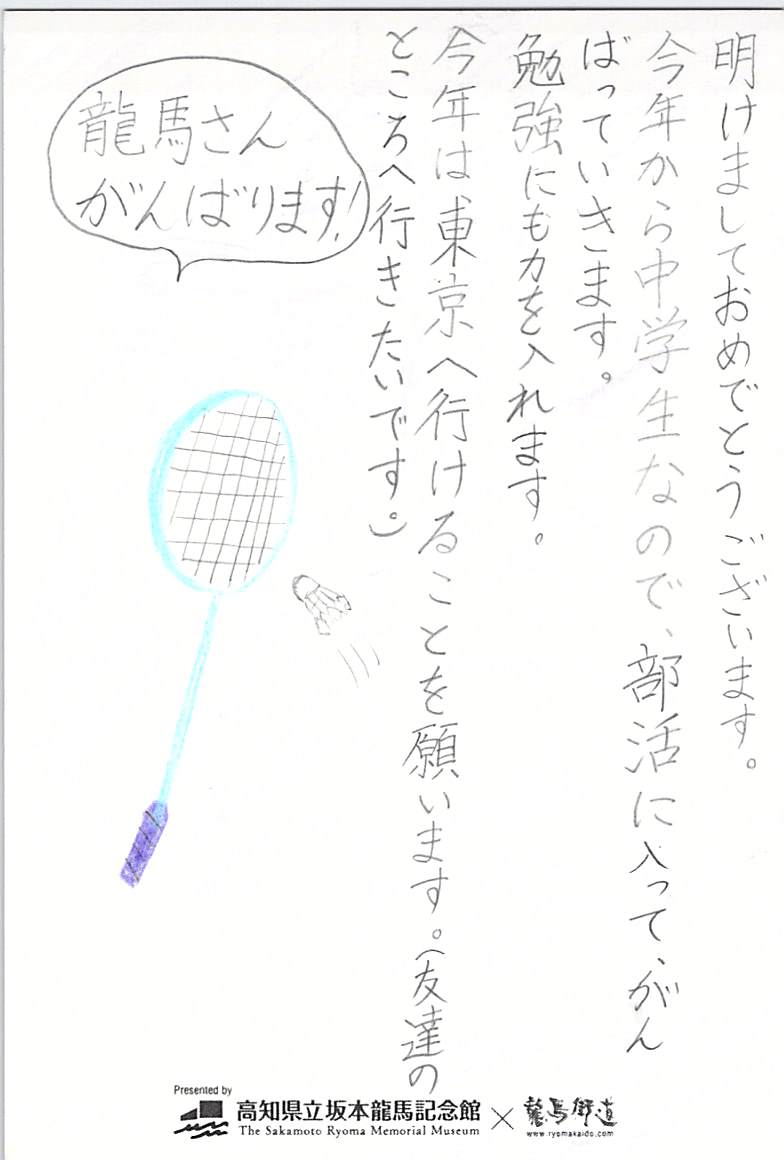 明けましておめでとうございます。
今年から中学生なので、部活に入って、がん
ばっていきます。
勉強にも力を入れます。
今年は、東京へ行けることを願います。(友達の
ところへ行きたいです。)
龍馬さん
がんばります!
Presented by
高知県立坂本龍馬記念館
The Sakamoto Ryoma Memorial Museum
×
龍馬街道
www.ryomakaido.com